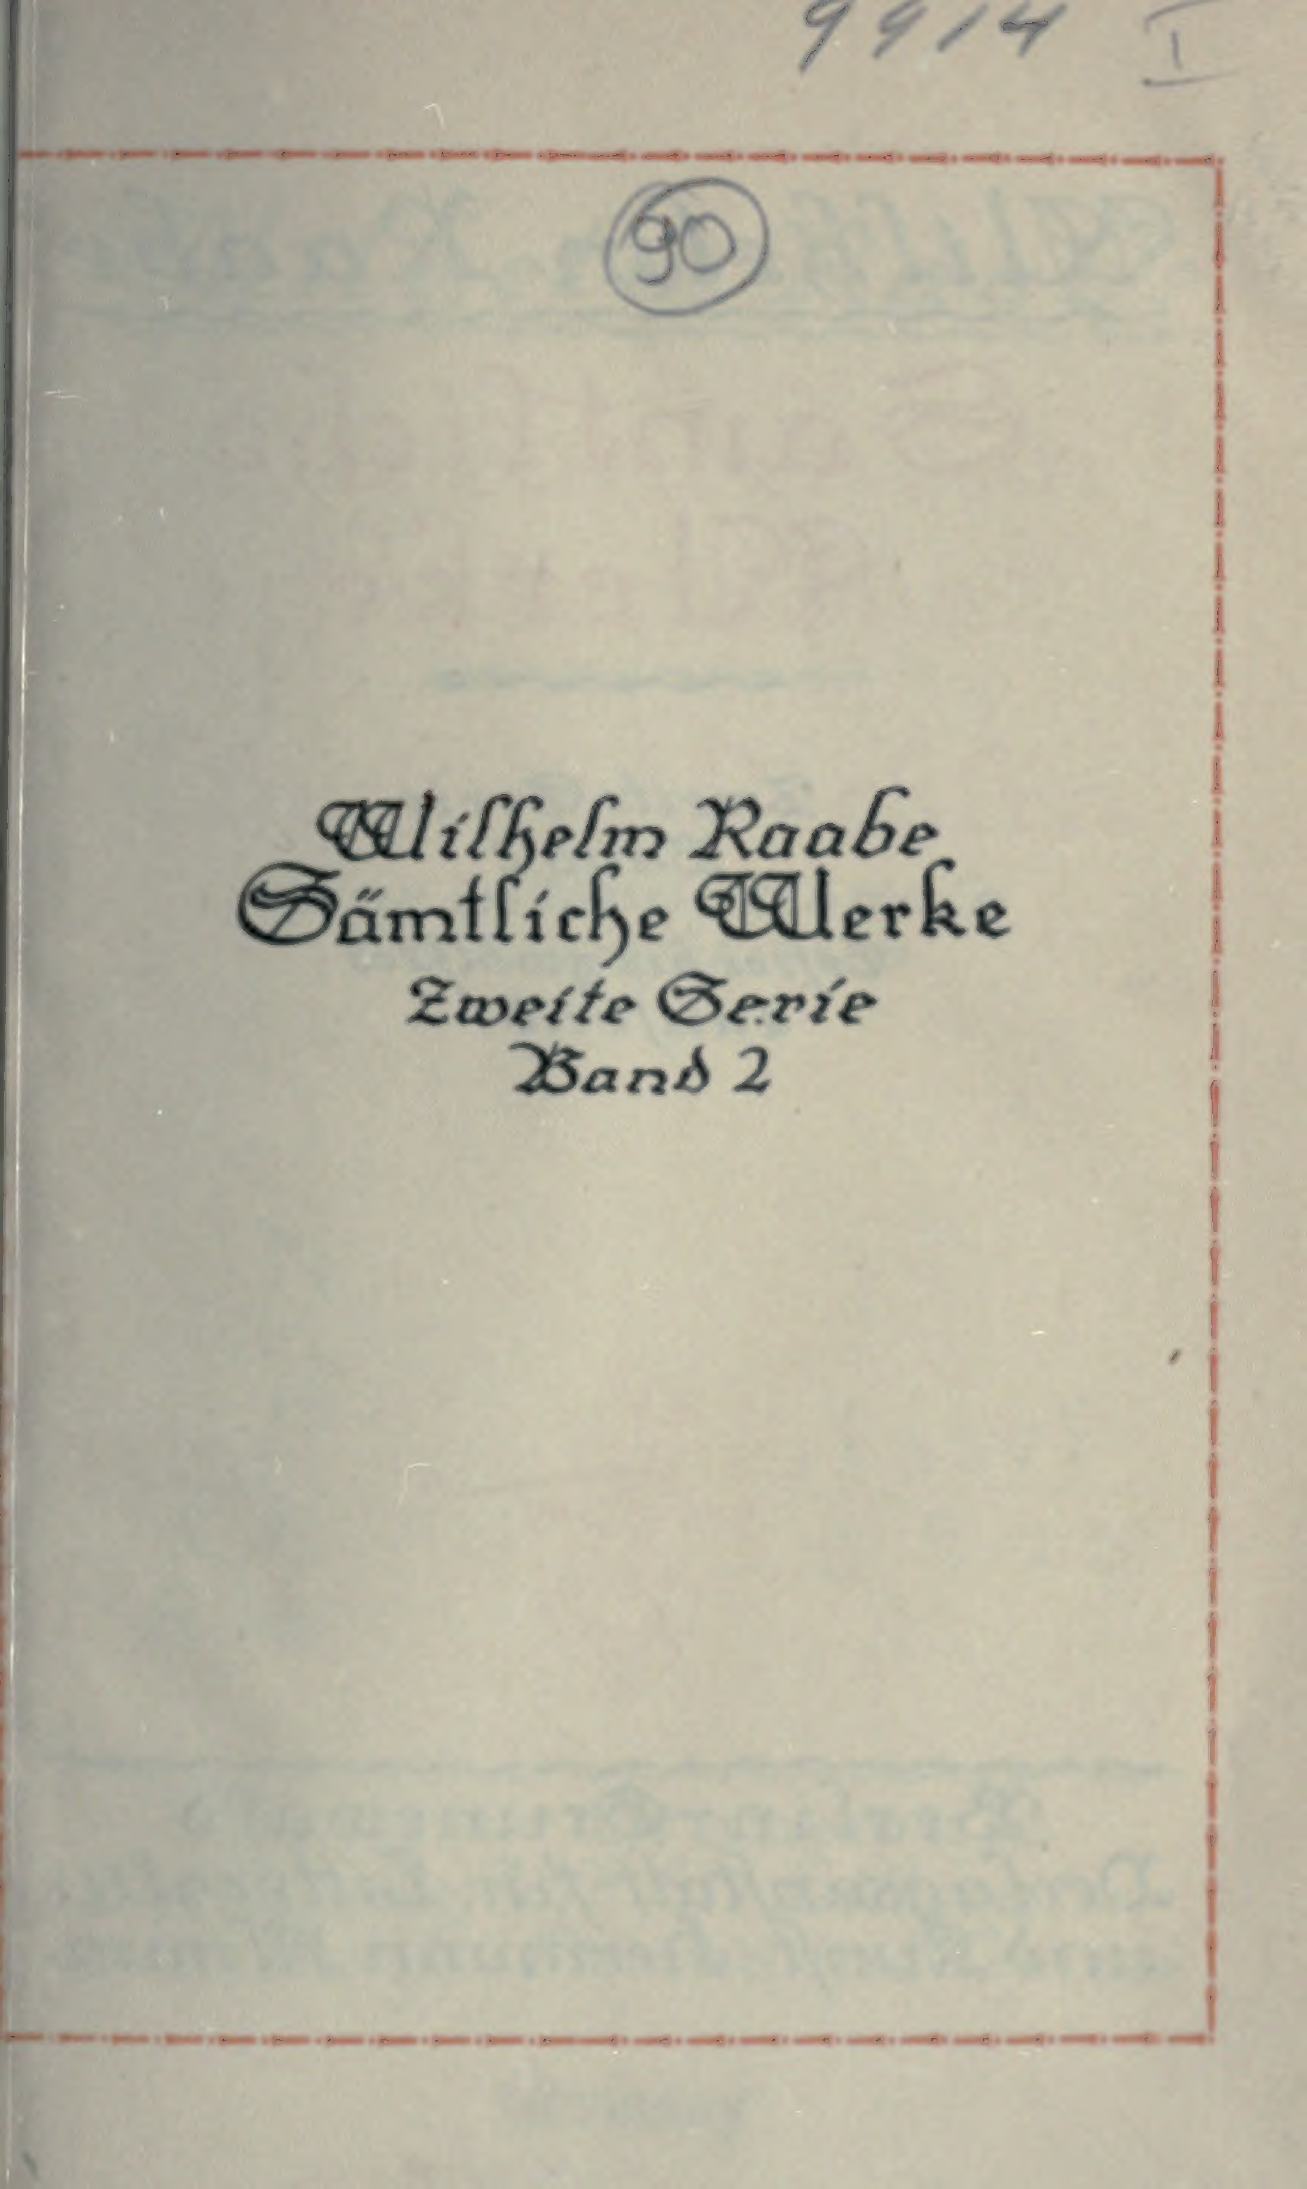 9914 I
90
Wilhelm Raabe
Sämtliche Werke
Zweite Serie
Band 2